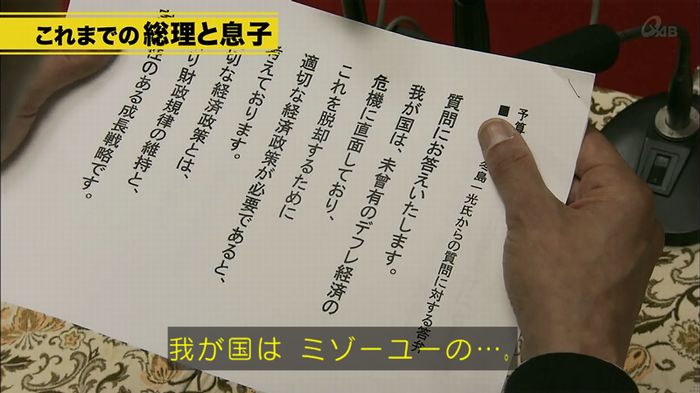 これまでの総理と息子
予算
■ 冬島一光氏からの質問に対する答弁
質問にお答えいたします。
我が国は、未曾有のデフレ経済の
危機に直面しており、
これを脱却するために
適切な経済政策が必要であると、
考えております。
切な経済政策とは、
り財政規律の維持と、
性のある成長戦略です。
我が国は ミゾーユーの…。